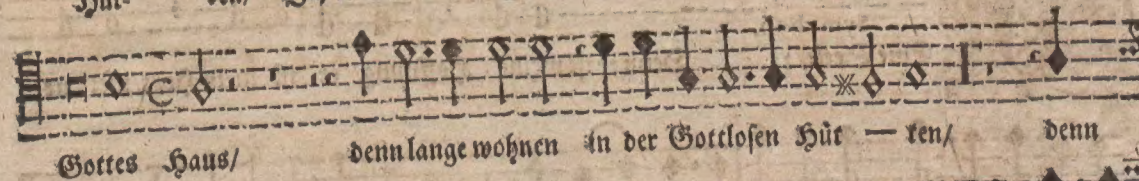 Gottes Haus/ denn lange wohnen in der Gottlosen Hüt — ten/ denn